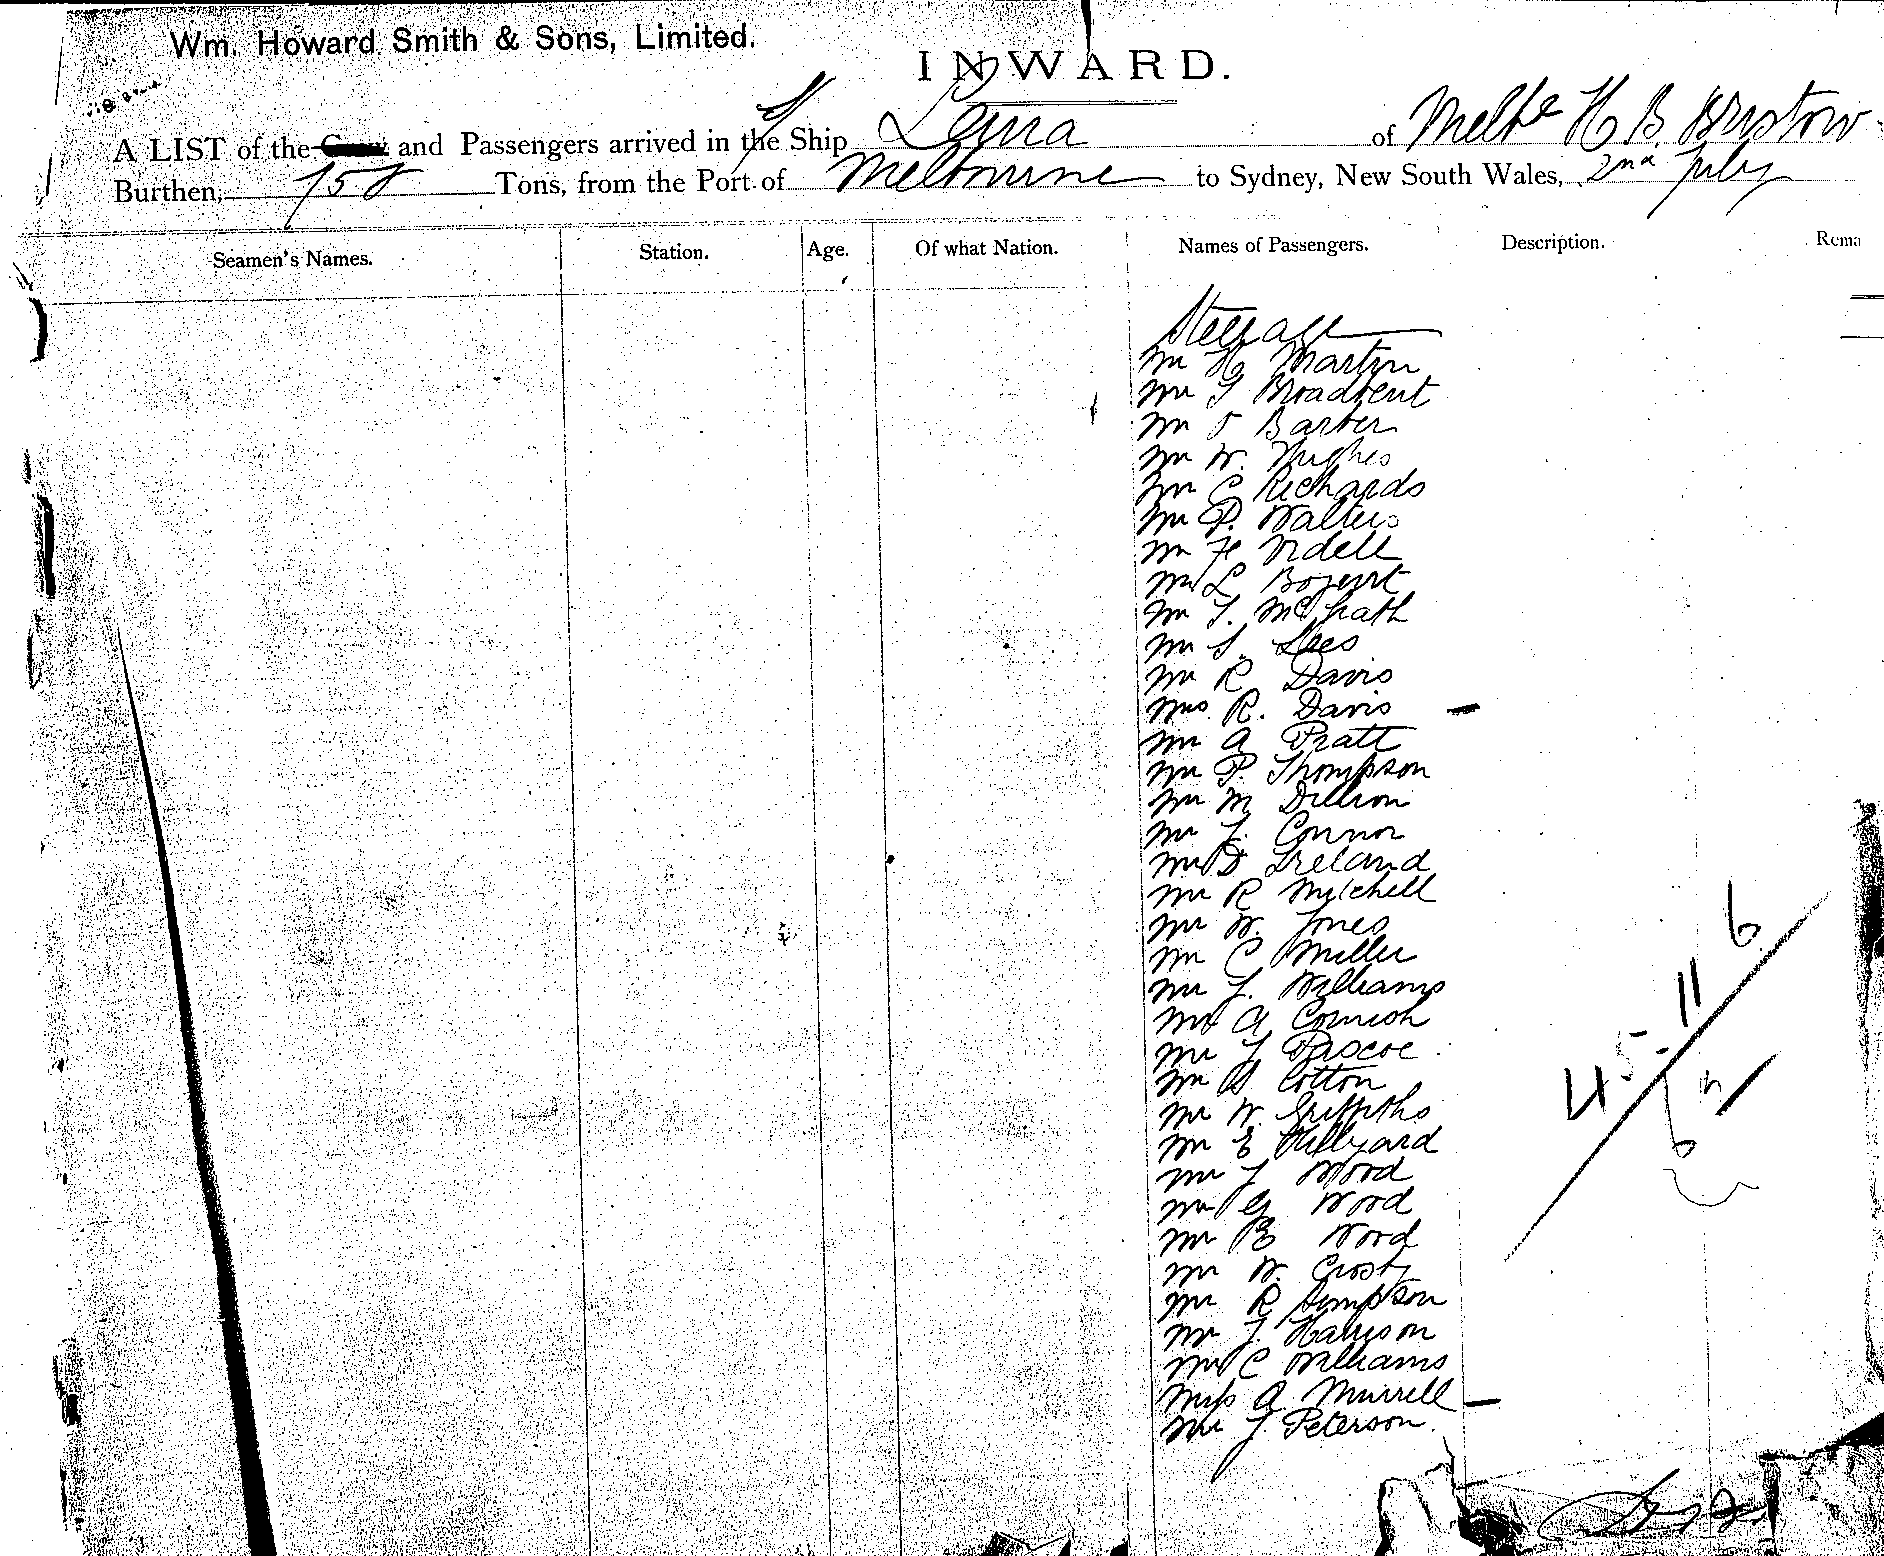 Wm. Howard Smith & Sons, Limited.
INWARD.
A LIST of the Crew and Passengers arrived in the Ship of Melbe H. B. Bristow
Burthen, 758 Tons, from the Port of Melbourne to Sydney, New South Wales, 2nd July
Seamen's Names. Station. Age. Of what Nation. Names of Passengers. Description. Rema
Steerage
Mr H Martyn
Mr T Broadbent
Mr J Barber
Mr W. Hughes
Mr C Richards
Mr P. Walters
Mr F.
Mr L
Mr T. McGrath
Mr S. Lees
Mr R Davis
Mrs. R. Davis
Mr A Pratt
Mr P. Thompson
Mr M Dillion
Mr J. Connor
Mr D Ireland
Mr R Mitchell
Mr W. Jones
Mr C Miller
Mr J. Williams
Mr A Cornish
Mr J Briscoe
Mr Cotton
Mr W. Griffiths
Mr E Hillyard
Mr J Wood
Mr G Wood
Mr E Wood
Mr W. Crosby
Mr R Simpson
Mr J. Harrison
Mr C Williams
Miss A Murrell
Mr J. Peterson.
6
11
45
6